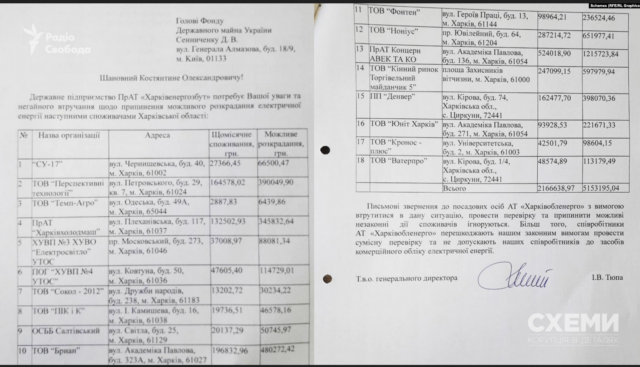 Радіо
Свобода
Голові Фонду
Державного майна України
Сенниченку Д. В.
вул. Генерала Алмазова, буд. 18/9,
м. Київ, 01133
Шановний Костянтине Олександровичу!
Державне підприємство ПрАТ «Харківенергозбут» потребує Вашої уваги та
негайного втручання щодо припинення можливого розкрадання електричної
енергії наступними споживачами Харківської області:
№ Назва організації Адреса Щомісячне споживання, грн. Можливе розкрадання, грн.
1 "СУ-17" вул. Чернишевська, буд. 40, м. Харків, 61002 27366,45 66500,47
2 ТОВ "Перспективні технології" вул. Петровського, буд. 29, кв. 7, м. Харків, 61024 164578,02 390049,90
3 ТОВ "Темп-Агро" вул. Одеська, буд. 49А, м. Харків, 65044 2887,83 6439,86
4 ПрАТ "Харківхолодмаш" вул. Плеханівська, буд. 117, м. Харків, 61037 132502,93 345832,64
5 ХУВП №3 ХУВО "Електросвітло" УТОС пр. Московський, буд. 273, м. Харків, 61046 37008,97 88081,34
6 ПОГ "ХУВП №4 УТОС" вул. Ковтуна, буд. 50, м. Харків, 61036 47605,40 114729,01
7 ТОВ "Сокол - 2012" вул. Дружби народів, буд. 238, м. Харків, 61183 13202,72 30234,22
8 ТОВ "ПІК і К" вул. І. Камишева, буд. 16, м. Харків, 61038 19736,51 46578,16
9 ОСББ Салтівський вул. Світла, буд. 25, м. Харків, 61129 20137,29 50745,97
10 ТОВ "Бриан" вул. Академіка Павлова, буд. 323А, м. Харків, 61027 196832,96 480272,42
Schemes (RFE/RL) Graphics
11 ТОВ "Фонтен" вул. Героїв Праці, буд. 13, м. Харків, 61144 98964,21 236524,46
12 ТОВ "Ноніус" пр. Ювілейний, буд. 64, м. Харків, 61204 287214,72 651977,41
13 ПрАТ Концерн АВЕК ТА КО вул. Академіка Павлова, буд. 136, м. Харків, 61054 524018,90 1215723,84
14 ТОВ "Кінний ринок Торгівельний майданчик 5" площа Захисників вітчизни, м. Харків, 61000 247099,15 597979,94
15 ПП "Денвер" вул. Кірова, буд. 74, Харківська обл., с. Циркуни, 72441 162477,70 398070,36
16 ТОВ "Юніт Харків" вул. Академіка Павлова, буд. 271, м. Харків, 61054 93928,53 221671,33
17 ТОВ "Кронос - плюс" вул. Університетська, буд. 2, м. Харків, 61003 42501,79 98604,15
18 ТОВ "Ватерпро" вул. Кірова, буд. 1/4, Харківська обл., с. Циркуни, 72441 48574,89 113179,49
Всього 2166638,97 5153195,04
Письмові звернення до посадових осіб АТ «Харківобленерго» з вимогою
втрутитися в дану ситуацію, провести перевірку та припинити можливі
незаконні дії споживачів ігноруються. Більш того, співробітники
АТ «Харківобленерго» перешкоджають нашим законним вимогам провести
сумісну перевірку та не допускають наших співробітників до засобів
комерційного обліку електричної енергії.
Т.в.о. генерального директора І.В. Тюпа
СХЕМИ
КОРУПЦІЯ В ДЕТАЛЯХ